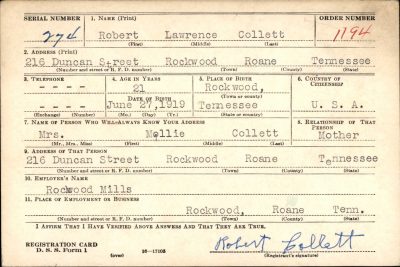 SERIAL NUMBER 1. NAME (Print) ORDER NUMBER
274 Robert Lawrence Collett 1194
(First) (Middle) (Last)
2. ADDRESS (Print)
216 Duncan Street Rockwood Roane Tennessee
(Number and street or R. F. D. number) (Town) (County) (State)
3. TELEPHONE 4. AGE IN YEARS 5. PLACE OF BIRTH 6. COUNTRY OF CITIZENSHIP
- - - - 21 Rockwood,
DATE OF BIRTH (Town or county)
- - - - June 27, 1919 Tennessee U. S. A.
(Exchange) (Number) (Mo.) (Day) (Yr.) (State or country)
7. NAME OF PERSON WHO WILL ALWAYS KNOW YOUR ADDRESS 8. RELATIONSHIP OF THAT PERSON
Mrs. Mollie Collett Mother
(Mr., Mrs., Miss) (First) (Middle) (Last)
9. ADDRESS OF THAT PERSON
216 Duncan Street Rockwood Roane Tennessee
(Number and street or R. F. D. number) (Town) (County) (State)
10. EMPLOYER'S NAME
Rockwood Mills
11. PLACE OF EMPLOYMENT OR BUSINESS
Rockwood, Roane Tenn.
(Number and street or R. F. D. number) (Town) (County) (State)
I AFFIRM THAT I HAVE VERIFIED ABOVE ANSWERS AND THAT THEY ARE TRUE.
REGISTRATION CARD
D. S. S. Form 1 (over) 16—17105 Robert Collett
(Registrant's signature)